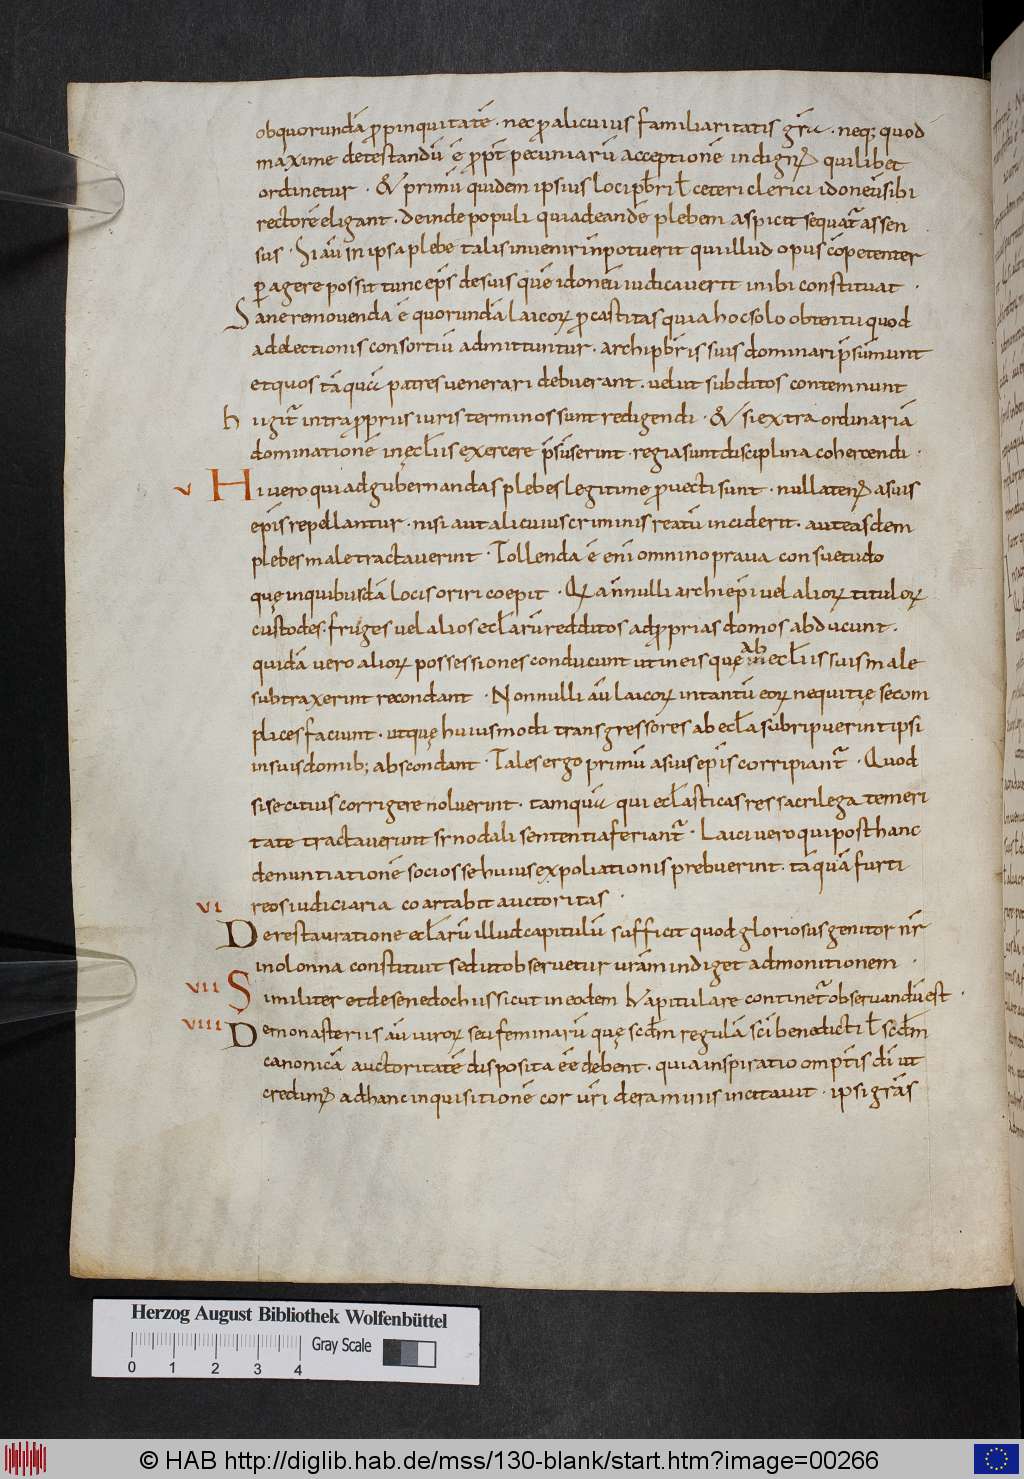 obquorundā ꝓpinquitatē · nec ꝓ alicuius familiaritatis grā · neq; quod
maxime detestandū ē ꝓpt pecuniarū acceptionē indignꝰ quilibet
ordinetur · & primū quidem ipsius loci pbri ł ceteri clerici idoneū sibi
rectorē eligant · deinde populi qui ad eandē plebem aspicit sequat̄ assen
sus · Si aū in ipsa plebe talis inueniri ñ potuerit qui illud opus cōpetenter
ꝑagere possit tunc eps̄ de suis quē idoneū iudicauerit inibi constituat ·
Sane remouenda ē quorundā laicoꝝ ꝓcastitas qui a hoc solo obtentu quod
ad electionis consortiū admittuntur · archipbris suis dominari p̄sumunt
et quos tāquā patres uenerari debuerant · uelut subditos contemnunt
hi igit̄ intra ꝓprius iuris terminos sunt redigendi · & si extra ordinariā
dominationē in ęcłiis exercere p̄sūserint · regia sunt disciplina cohercendi ·
V Hi uero qui ad gubernandas plebes legitime ꝓuecti sunt · nullatenꝰ a suis
epīs repellantur · nisi aut alicuius criminis reatū inciderit · aut easdem
plebes male tractauerint · Tollenda ē eni omnino praua consuetudo
quę in quibusdā locis oriri coepit · Quia nnulli archiepi uel alioꝝ tituloꝝ
custodes · fruges uel alios ecłarū redditos ad ꝓprias domos abducunt ·
quidā uero alioꝝ possessiones conducunt ut in eis quę ab ecłiis suis male
subtraxerint recondant · Nonnulli aū laicoꝝ in tantū eoꝝ nequitię se com
plices faciunt · ut quę huiusmodi transgressores ab ecła subripuerint ipsi
in suis domib; abscondant · Tales ergo primū a suis epīs corripiant̄ · Quod
si se citius corrigere noluerint · tamquā qui ecłasticas res sacrilega temeri
tate tractauerunt synodali sententia feriant̄ · Laici uero qui post hanc
denuntiationē socios se huius expoliationis prebuerint · tāquā furti
reos iudiciaria coartabit auctoritas ·
VI De restauratione ecłarū illud capitulū sufficit quod gloriosus genitor nr̄
in olonna constituit sed ut obseruetur urām indiget admonitionem ·
VII Similiter et de senedochiis sicut in eodem kapitulare continet̄ obseruandū est ·
VIII De monasteriis aū uiroꝝ seu feminarū quę scdm regulā sci benedicti ł scdm
canonicā auctoritatē disposita eē debent · quia inspiratio omptīs dī ut
credimꝰ ad hanc inquisitionē cor urī deraminis incitauit · ipsi grās
Herzog August Bibliothek Wolfenbüttel
Gray Scale
0 1 2 3 4
© HAB http://diglib.hab.de/mss/130-blank/start.htm?image=00266